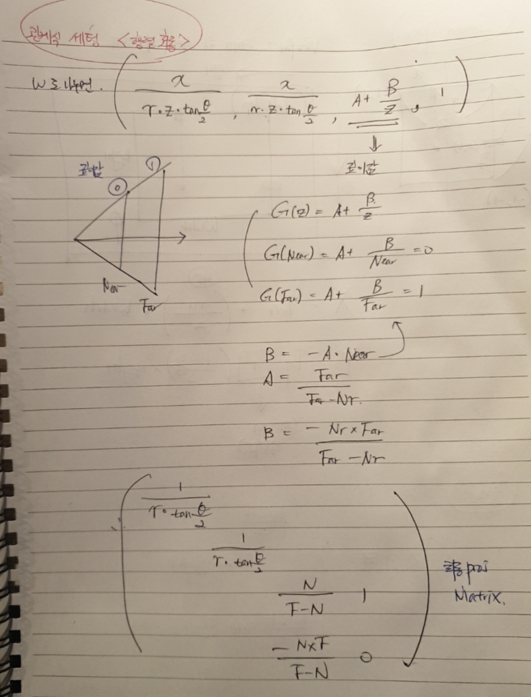 관계식 세팅 <행렬 곱>
W로 나누면. ( x / (r·z·tan θ/2) , x / (r·z·tan θ/2) , A + B/z , 1 )
⇓
깊이값
깊이값 ⓪ ①
Near
Far
G(z) = A + B/z
G(Near) = A + B/Near = 0
G(Far) = A + B/Far = 1
B = -A·Near
A = Far / (Far-Nr.)
B = -Nr×Far / (Far-Nr)
1 / (r·tan θ/2)
1 / (r·tan θ/2)
N / (F-N) 1
-N×F / (F-N) 0
최종 proj
Matrix.